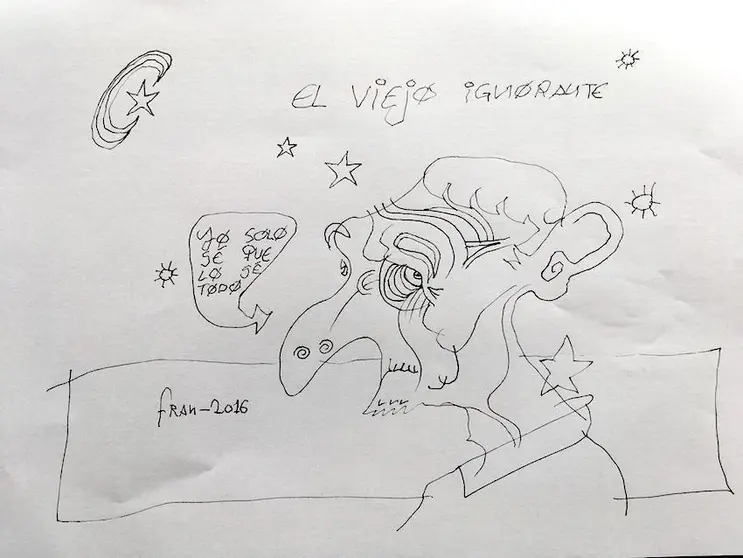 EL VIEJO IGNORANTE
YO SOLO
SÉ QUE
LO SÉ
TODO
FRAN-2016